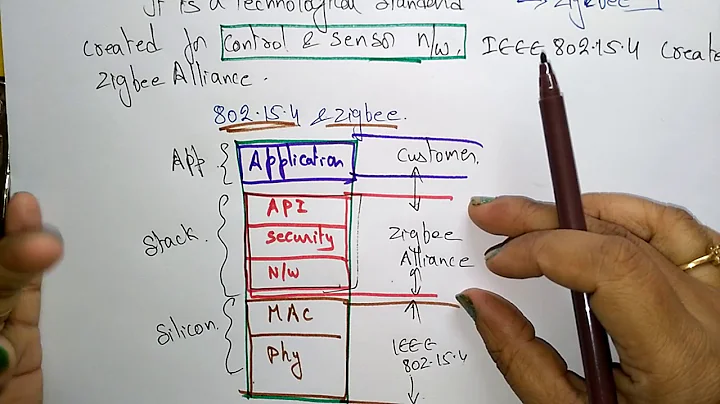 It is a Technological Standard → zigbee
created for Control & sensor n/w. IEEE 802.15.4 create
zigbee Alliance.
802.15.4 & zigbee.
App { Application customer.
API
security
Stack. { zigbee
N/w Alliance
MAC
Silicon. {
Phy IEEE
802.15.4